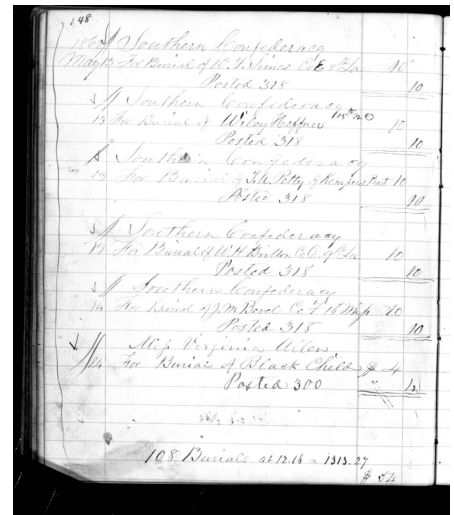 148
Southern Confederacy
May 13 For Burial of W. Simes Co E La 10
Posted 318 10
Southern Confederacy
13 For Burial of Wiley Heffner 10
Posted 318 10
Southern Confederacy
13 For Burial of Petty of Bat 10
Posted 318 10
Southern Confederacy
13 For Burial of W. H. Co E La 10
Posted 318 10
Southern Confederacy
14 For Burial of J. M. Co 16 Miss 10
Posted 318 10
Miss Virginia Allen
14 For Burial of Black Child $ 4
Posted 300 4
108 Burials at 12.16 = 1313.27
$ 54